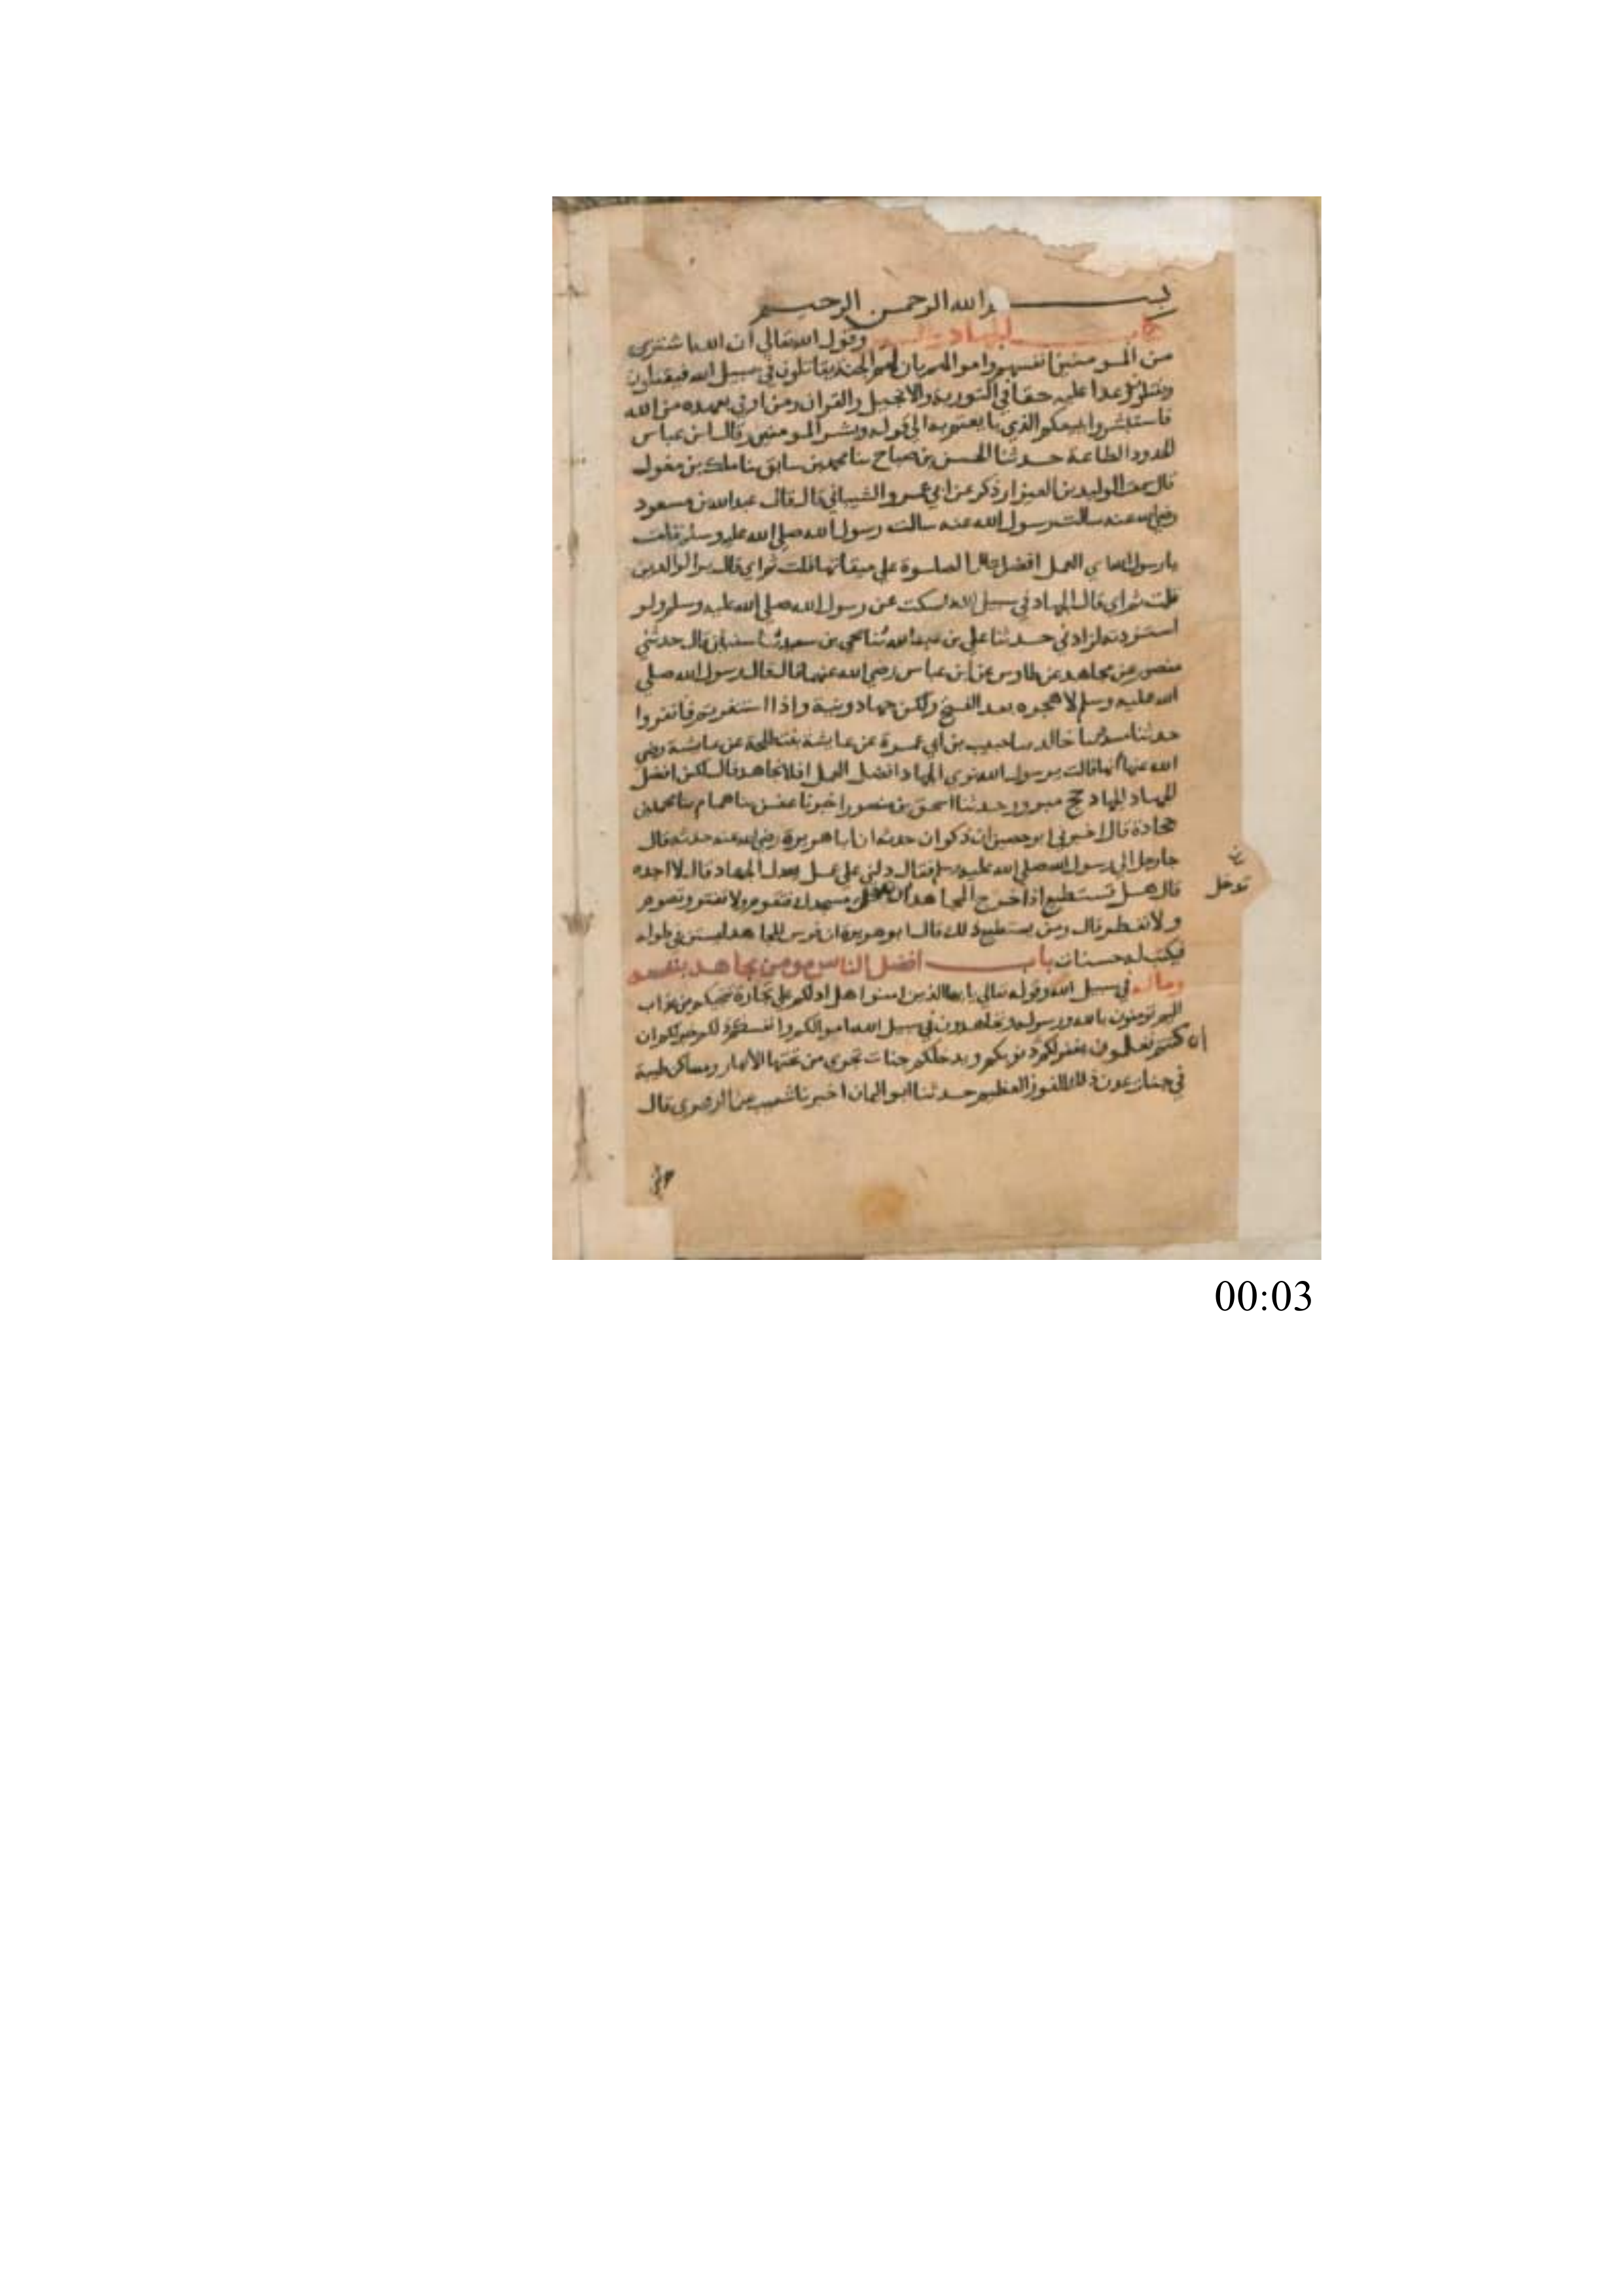 بسم الله الرحمن الرحيم
كتاب الجهاد وقول الله تعالى ان الله اشترى
من المومنين انفسهم واموالهم بان لهم الجنة يقاتلون في سبيل الله فيقتلون
ويقتلون وعدا عليه حقا في التورية والانجيل والقران ومن اوفى بعهده من الله
فاستبشروا ببيعكم الذي بايعتم به الى قوله وبشر المومنين قال ابن عباس
الحدود الطاعة حدثنا الحسن بن صباح ثنا محمد بن سابق ثنا ملك بن مغول
قال سمعت الوليد بن العيزار ذكر عن ابي عمرو الشيباني قال قال عبد الله بن مسعود
رضي الله عنه سالت رسول الله عنه سالت رسول الله صلى الله عليه وسلم قلت
يا رسول الله اي العمل افضل قال الصلوة على ميقاتها قلت ثم اي قال بر الوالدين
قلت ثم اي قال الجهاد في سبيل الله فسكت عن رسول الله صلى الله عليه وسلم ولو
استزدته لزادني حدثنا علي بن عبد الله ثنا يحيى بن سعيد ثنا سفيان قال حدثني
منصور عن مجاهد عن طاوس عن ابن عباس رضي الله عنهما قال قال رسول الله صلى
الله عليه وسلم لا هجرة بعد الفتح ولكن جهاد ونية واذا استنفرتم فانفروا
حدثنا مسدد ثنا خالد ثنا حبيب بن ابي عمرة عن عايشة بنت طلحة عن عايشة رضي
الله عنها انها قالت يرسول الله نرى الجهاد افضل العمل افلا نجاهد قال لكن افضل
الجهاد الجهاد حج مبرور حدثنا اسحق بن منصور اخبرنا عفن ثنا همام ثنا محمد بن
جحادة قال اخبرني ابو حصين ان ذكوان حدثه ان ابا هريرة رضي الله عنه حدثه قال
جا رجل الى رسول الله صلى الله عليه وسلم فقال دلني على عمل يعدل الجهاد قال لا اجده
قال هل تستطيع اذا خرج المجاهد ان تدخل مسجدك فتقوم ولا تفتر وتصوم
تدخل
ولا تفطر قال ومن يستطيع ذلك قال ابو هريرة ان فرس المجاهد ليستن في طوله
فيكتب له حسنات باب افضل الناس مومن يجاهد بنفسه
وماله في سبيل الله وقوله تعالى يا ايها الذين امنوا هل ادلكم على تجارة تنجيكم من عذاب
اليم تومنون بالله ورسوله وتجاهدون في سبيل الله باموالكم وانفسكم ذلكم خير لكم ان
ان كنتم تعلمون يغفر لكم ذنوبكم ويدخلكم جنات تجري من تحتها الانهار ومساكن طيبة
في جنات عدن ذلك الفوز العظيم حدثنا ابو اليمان اخبرنا شعيب عن الزهري قال
حدثني
00:03